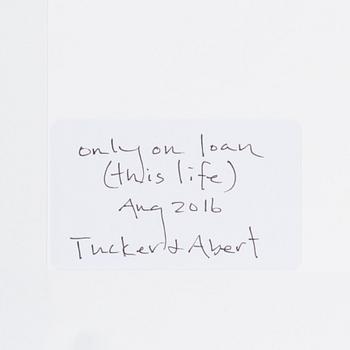 only on loan
(this life)
Aug 2016
Tucker & Abert